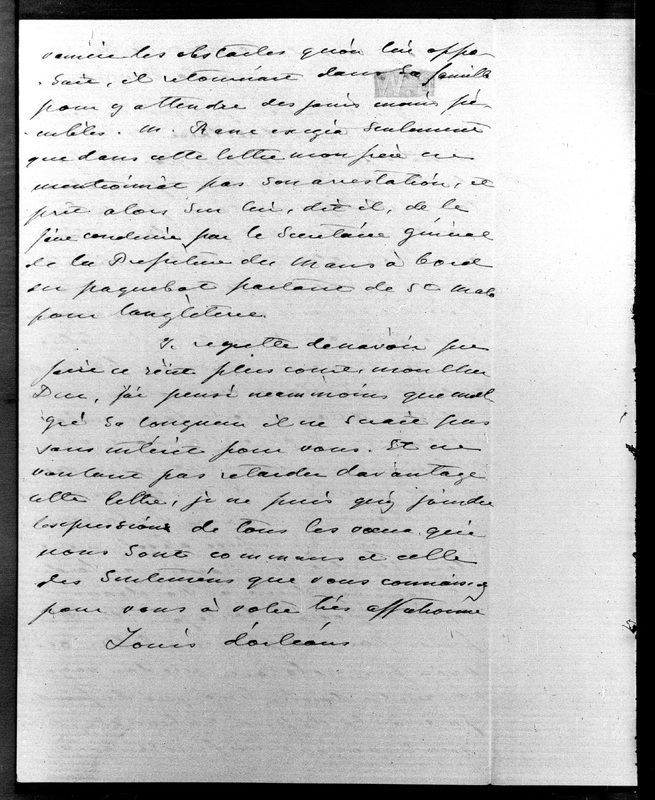 vaincre les obstacles qu'on lui oppo-
-sait, il retournait dans sa famille
pour y attendre des jours moins pé-
-nibles. M. Ranc exigea seulement
que dans cette lettre mon frère ne
mentionnât pas son arrestation, et
prit alors sur lui, dit il, de le
faire conduire par le Secrétaire Général
de la Préfecture du Mans à bord
du paquebot partant de St Malo
pour l'angleterre.
Je regrette de n'avoir pu
faire ce récit plus court, mon cher
Duc, j'ai pensé neanmoins que mal
gré sa longueur il ne serait pas
sans intérêt pour vous. Et ne
voulant pas retarder davantage
cette lettre, je ne puis qu'y joindre
l'expression de tous les vœux qui
nous sont communs et celle
des sentiments que vous connaissez
pour vous à votre très affectionné
Louis d'orléans